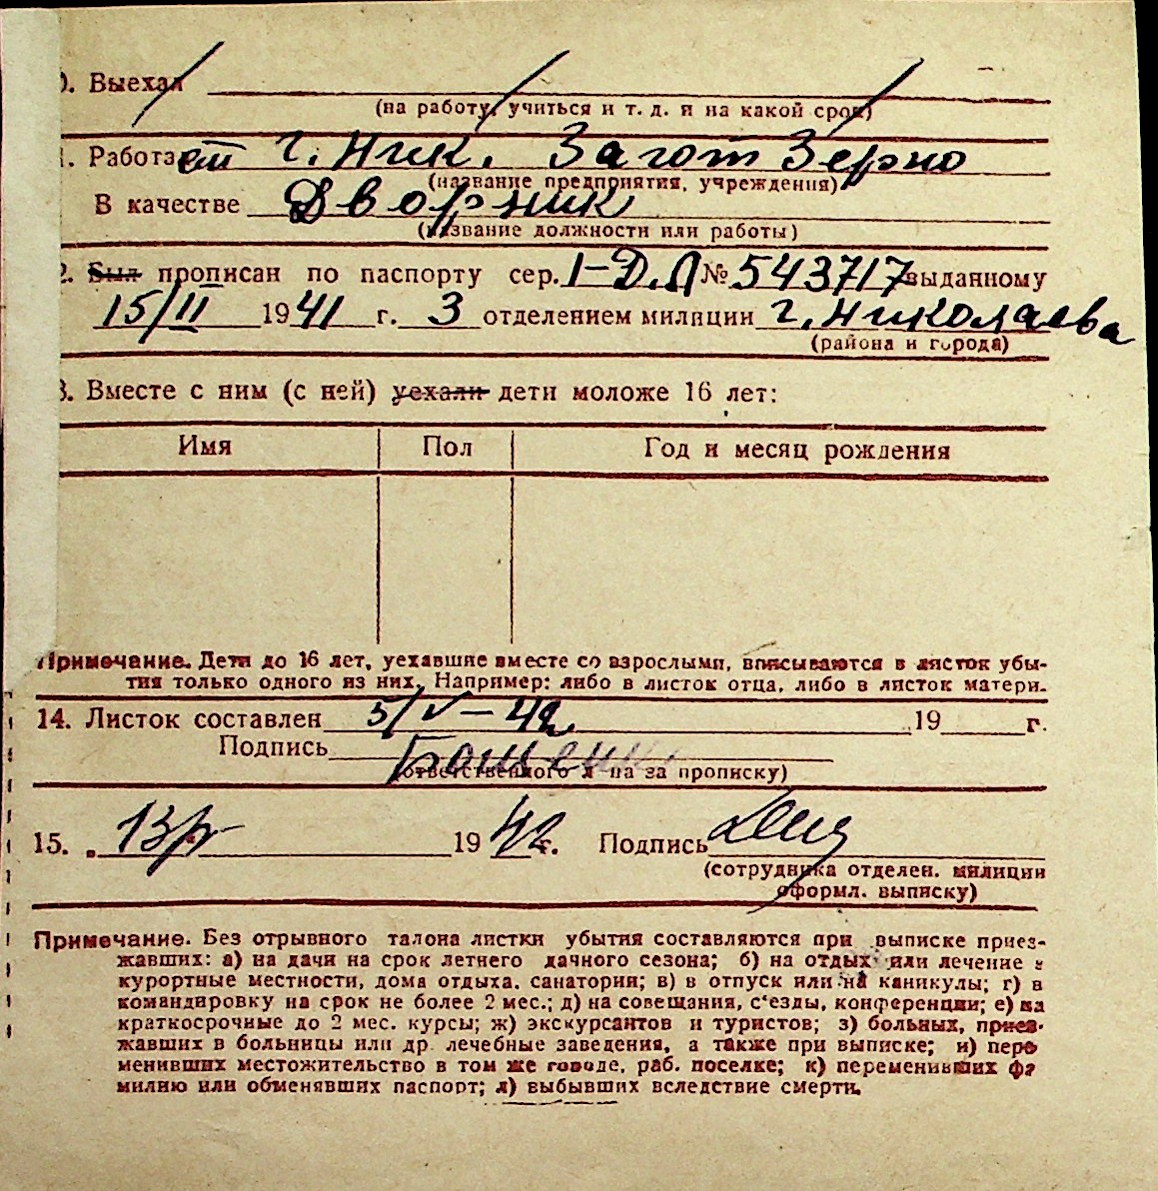 0. Выехал
(на работу, учиться и т. д. и на какой срок)
1. Работает г. Ник. Загот Зерно
(название предприятия, учреждения)
В качестве Дворник
(название должности или работы)
2. Был прописан по паспорту сер. I-Д.Л № 543717 выданному
15/II 1941 г. 3 отделением милиции г. Николаева
(района и города)
3. Вместе с ним (с ней) уехали дети моложе 16 лет:
Имя Пол Год и месяц рождения
Примечание. Дети до 16 лет, уехавшие вместе со взрослыми, вписываются в листок убы-
тия только одного из них. Например: либо в листок отца, либо в листок матери.
14. Листок составлен 5/V-42 19 г.
Подпись
(ответственного л-ца за прописку)
15. 13/ 1942 г. Подпись
(сотрудника отделен. милиции
оформл. выписку)
Примечание. Без отрывного талона листки убытия составляются при выписке приез-
жавших: а) на дачи на срок летнего дачного сезона; б) на отдых или лечение в
курортные местности, дома отдыха, санатории; в) в отпуск или на каникулы; г) в
командировку на срок не более 2 мес.; д) на совещания, с'езды, конференции; е) на
краткосрочные до 2 мес. курсы; ж) экскурсантов и туристов; з) больных, приез-
жавших в больницы или др. лечебные заведения, а также при выписке; и) пере
менивших местожительство в том же городе, раб. поселке; к) переменивших фа
милию или обменявших паспорт; л) выбывших вследствие смерти.